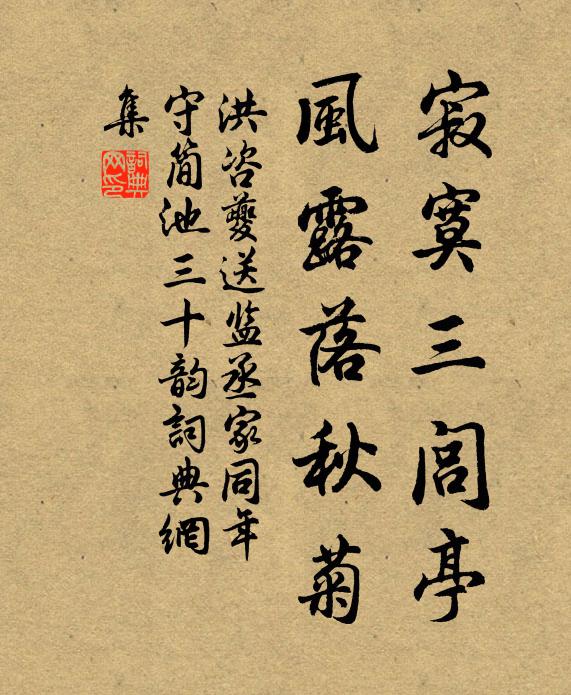 寂寞三閭亭
風露落秋菊
洪咨夔送监丞家同年
守简池三十韵詞典網
集
詞典
网印